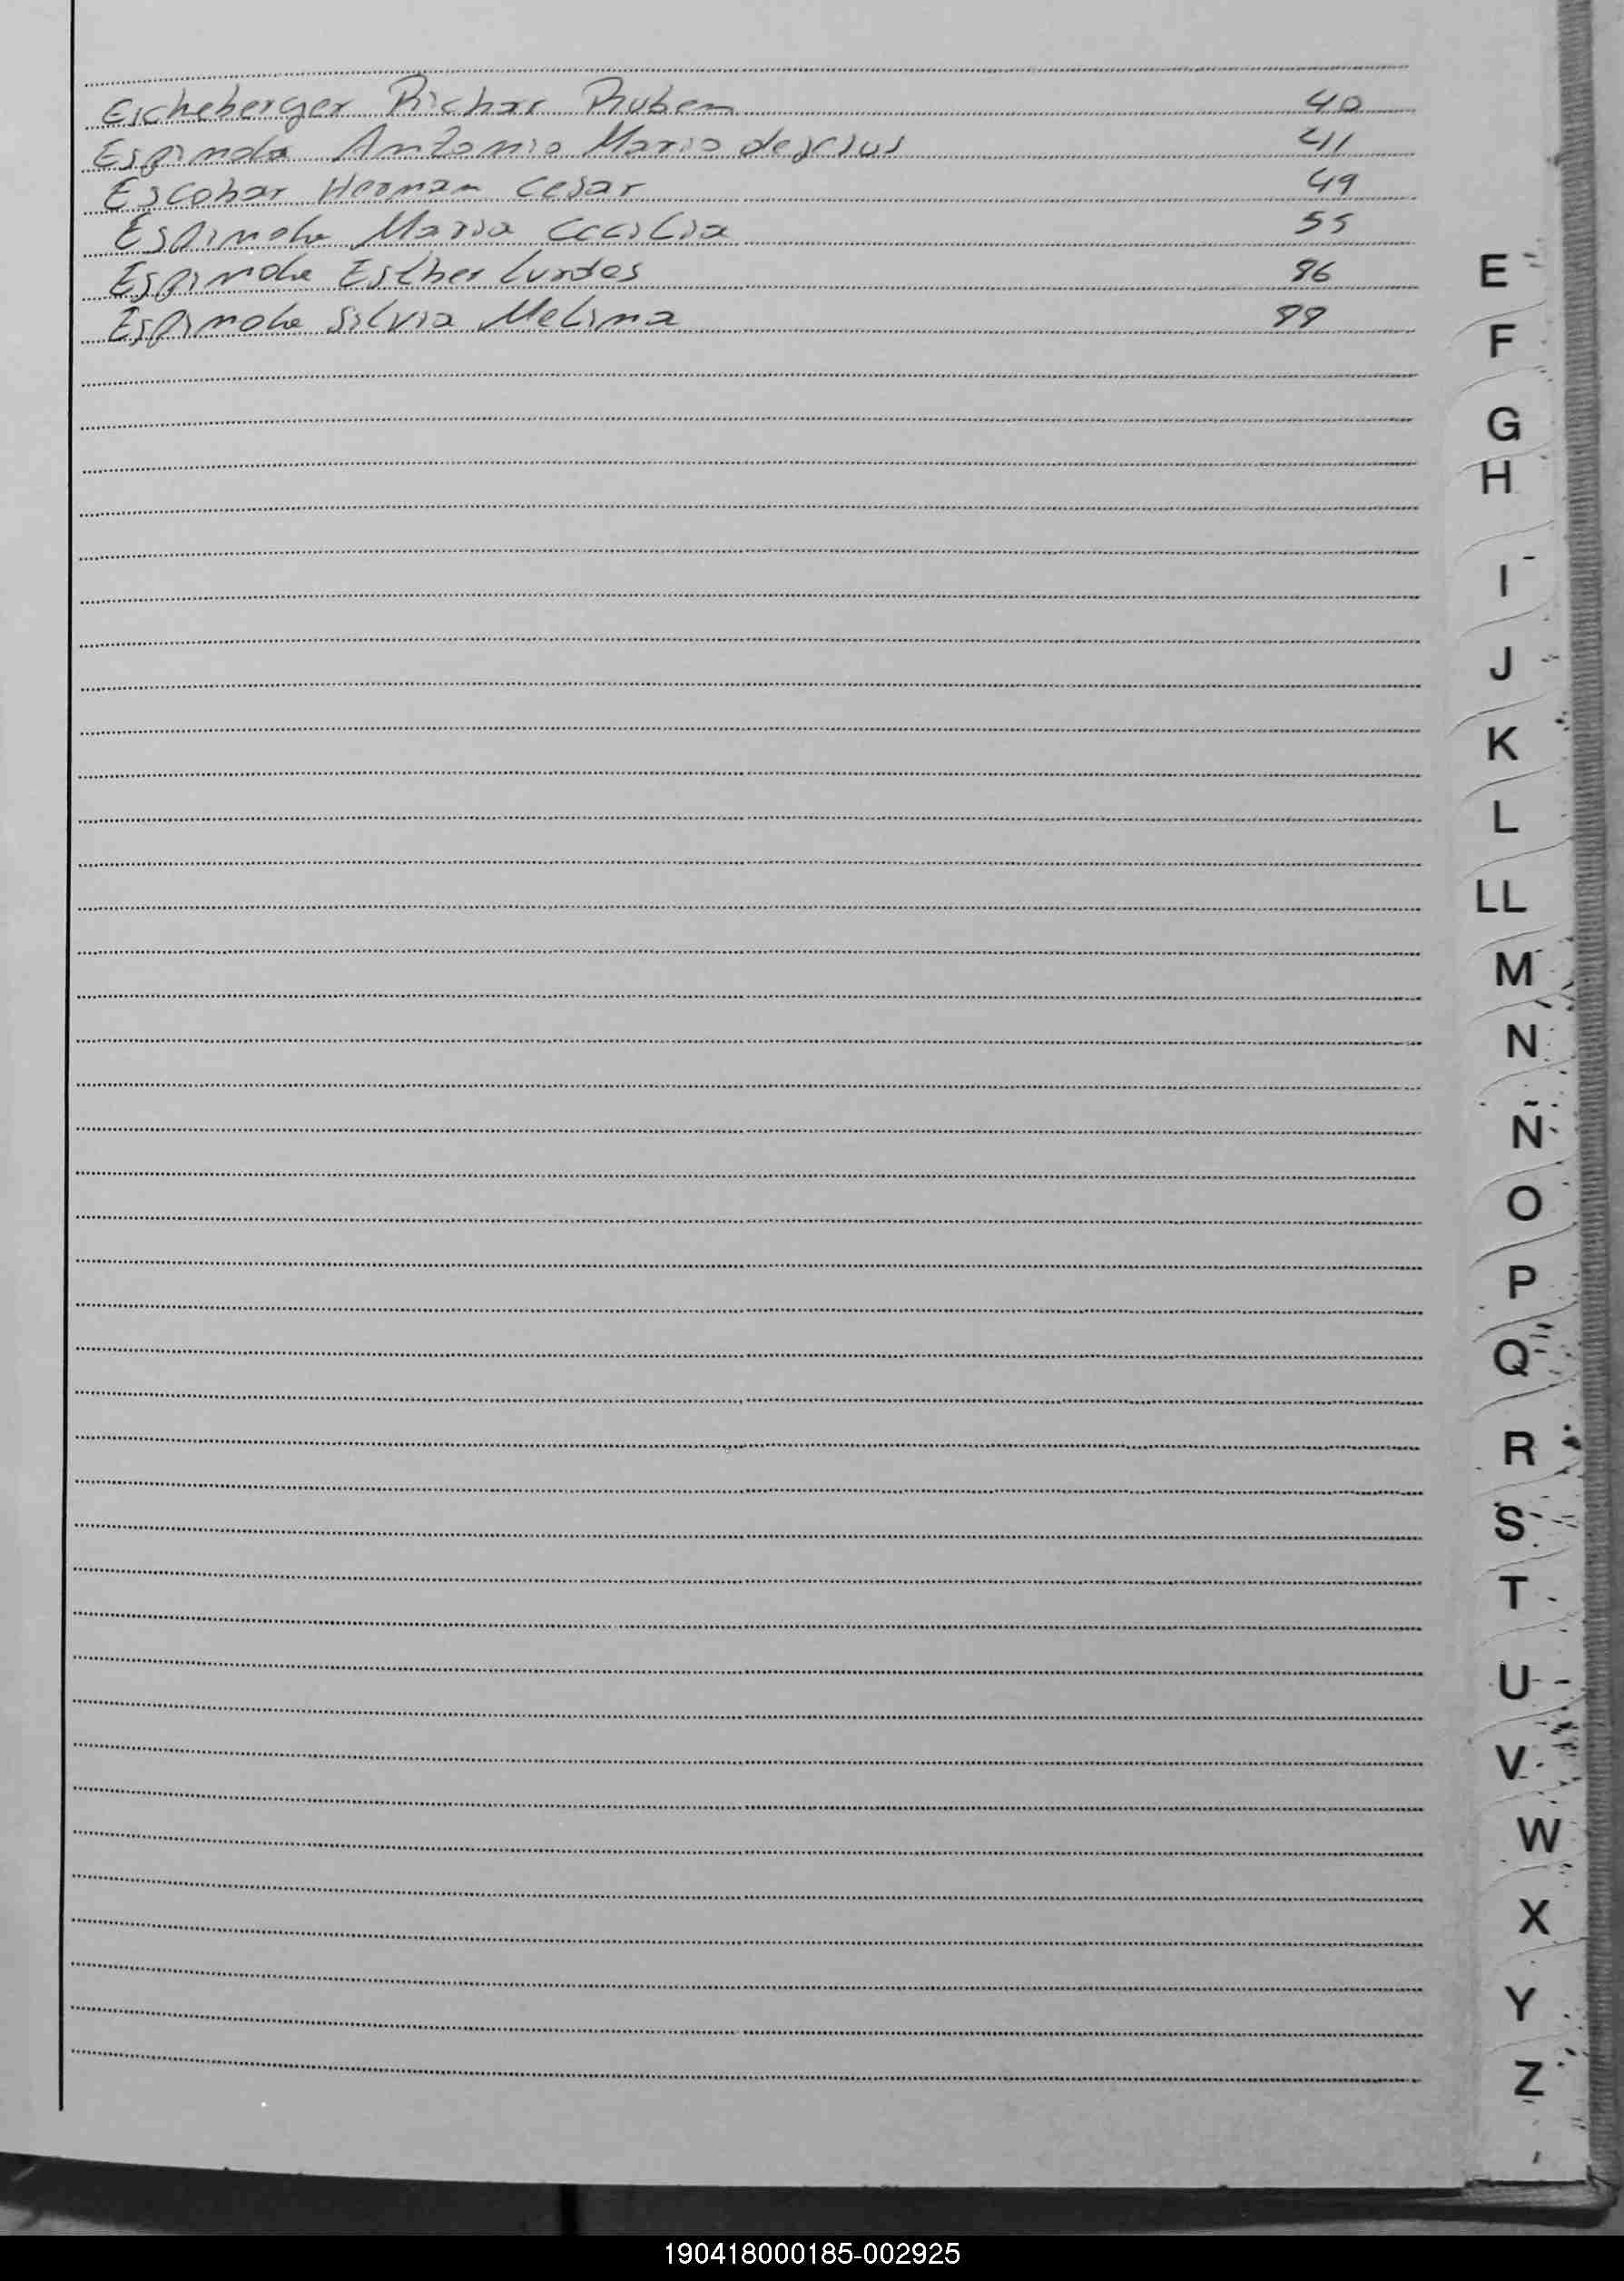 Eicheberger Richar Ruben 40
Espinola Antonio Mario de jesus 41
Escobar Hernan Cesar 49
Espinola Maria Cecilia 55
Espinola Esther Lurdes 86
Espinola Silvia Melina 88
E
F
G
H
I
J
K
L
LL
M
N
Ñ
O
P
Q
R
S
T
U
V
W
X
Y
Z
190418000185-002925